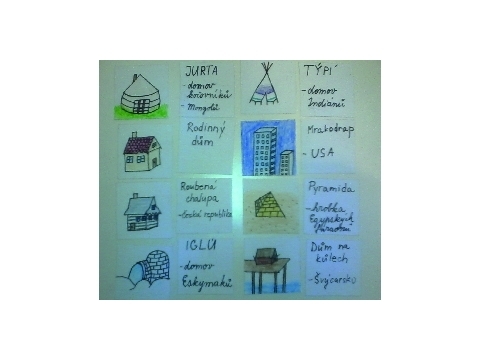 JURTA
- domov
kočovníků
- Mongolů
TÝPÍ
- domov
Indiánů
Rodinný
dům
Mrakodrap
- USA
Roubená
chalupa
- Česká republika
Pyramida
- hrobka
Egyptských
faraonů
IGLÚ
- domov
Eskymáků
Dům na
kůlech
- Švýcarsko